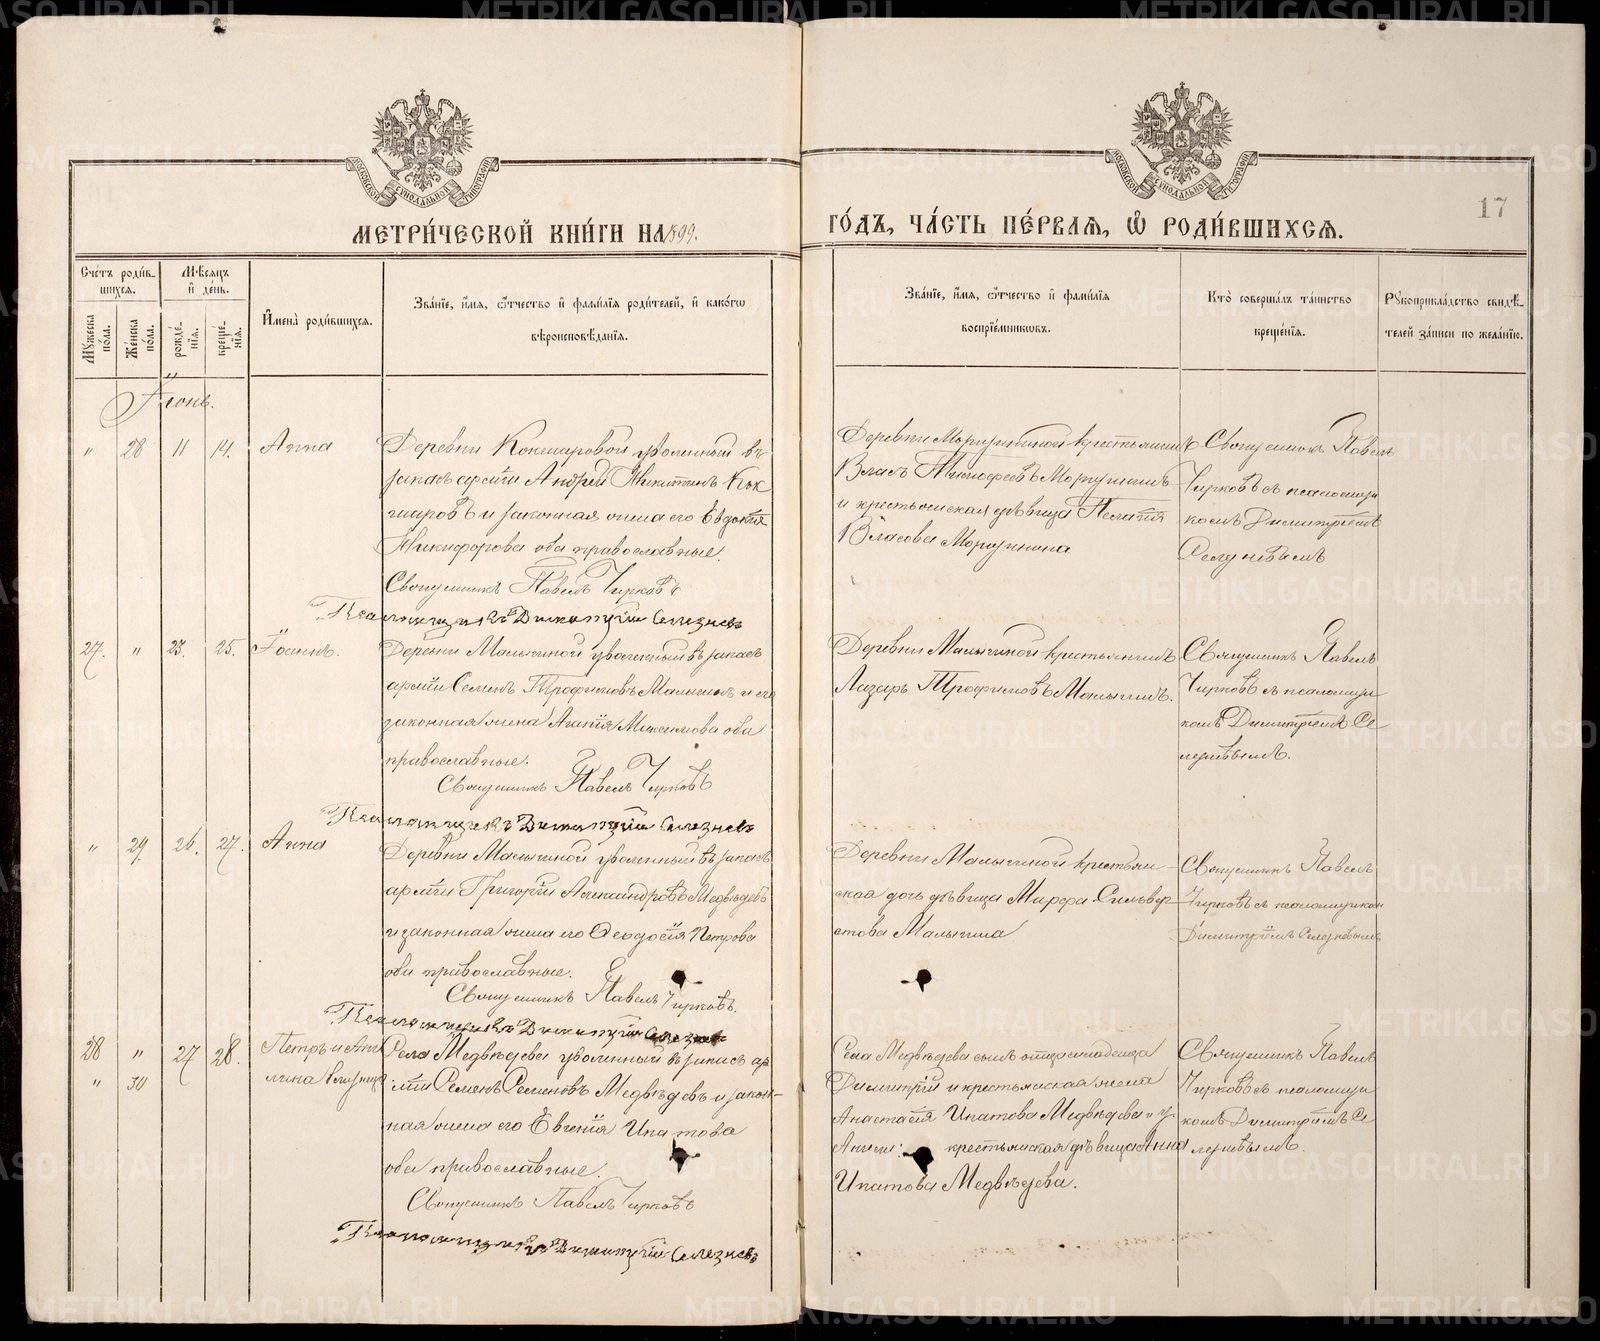 МЕТРИ́ЧЕСКОЙ КНИ́ГИ НА 1899.
ГО́ДЪ, ЧА́СТЬ ПЕ́РВАЯ, Ѽ РОДИ́ВШИХСЯ.
17
Сче́тъ роди́в-
шихся.
Му́жеска
по́ла.
Же́нска
по́ла.
Мѣ́сяцъ
и҆ де́нь.
рожде́-
нїя.
креще́-
нїя.
И҆мена̀ роди́вшихся.
Зва́нїе, и҆́мя, ѻ҆́тчество и҆ фамилїя роди́телей, и҆ како́гѡ
вѣроисповѣ́данїя.
Зва́нїе, и҆́мя, ѻ҆́тчество и҆ фамилїя
воспрїе́мникѡвъ.
Кто̀ соверша́лъ та́инство
креще́нїя.
Рꙋкоприкла́дство свидѣ́-
телей за́писи по жела́нїю.
Іюнь.
" 28 11 14. Анна
Деревни Кокшаровой уволенный въ
запасъ арміи Андрей Никитинъ Кок
шаровъ и законная жена его Евдокія
Никифорова оба православные.
Священникъ Павелъ Чирковъ
Псаломщикъ Димитрій Селезневъ
Власъ
и крестьянская дѣвица Пелагія
Власова
Священникъ Павелъ
Чирковъ съ псаломщи
комъ Димитріемъ
Селезневымъ
27. " 23. 25. Іоаннъ.
Деревни Малыгиной уволенный въ запасъ
арміи Семенъ Трофимовъ Малыгинъ и его
законная жена Агапія Максимова оба
православные.
Священникъ Павелъ Чирковъ
Псаломщикъ Димитрій Селезневъ
Деревни Малыгиной крестьянинъ
Лазарь Трофимовъ Малыгинъ.
Священникъ Павелъ
Чирковъ съ псаломщи
комъ Димитріемъ Се
лезневымъ.
" 29. 26. 27. Анна
Деревни Малыгиной уволенный въ запасъ
арміи Григорій Александровъ Медвѣдевъ
и законная жена его Ѳеодосія Петрова
оба православные.
Священникъ Павелъ Чирковъ.
Псаломщикъ Димитрій Селезневъ
Деревни Малыгиной крестьян-
ская дочь дѣвица Марфа Сильвер-
стова Малыгина
Священникъ Павелъ
Чирковъ съ псаломщикомъ
Димитріемъ Селезневымъ
28 " 27 28. Петръ и Анге
" 30 лина близнецы
Села Медвѣдева уволенный въ запасъ ар
міи Семенъ Семеновъ Медвѣдевъ и закон-
ная жена его Евгенія Ипатова
оба православные.
Священникъ Павелъ Чирковъ
Псаломщикъ Димитрій Селезневъ
Села Медвѣдева сынъ
Димитрій и крестьянская жена
Анастасія Ипатова Медвѣдева "у
Ангел: крестьянская дѣвица Анна
Ипатова Медвѣдева.
Священникъ Павелъ
Чирковъ съ псаломщи
комъ Димитріемъ Се
лезневымъ.
METRIKI.GASO-URAL.RU